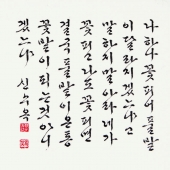 나 하나 꽃 피어 풀밭
이 달라지겠느냐고
말하지 말아라 네가
꽃 피고 나도 꽃 피면
결국 풀밭이 온통
꽃밭이 되는것 아니
겠느냐 신수옥